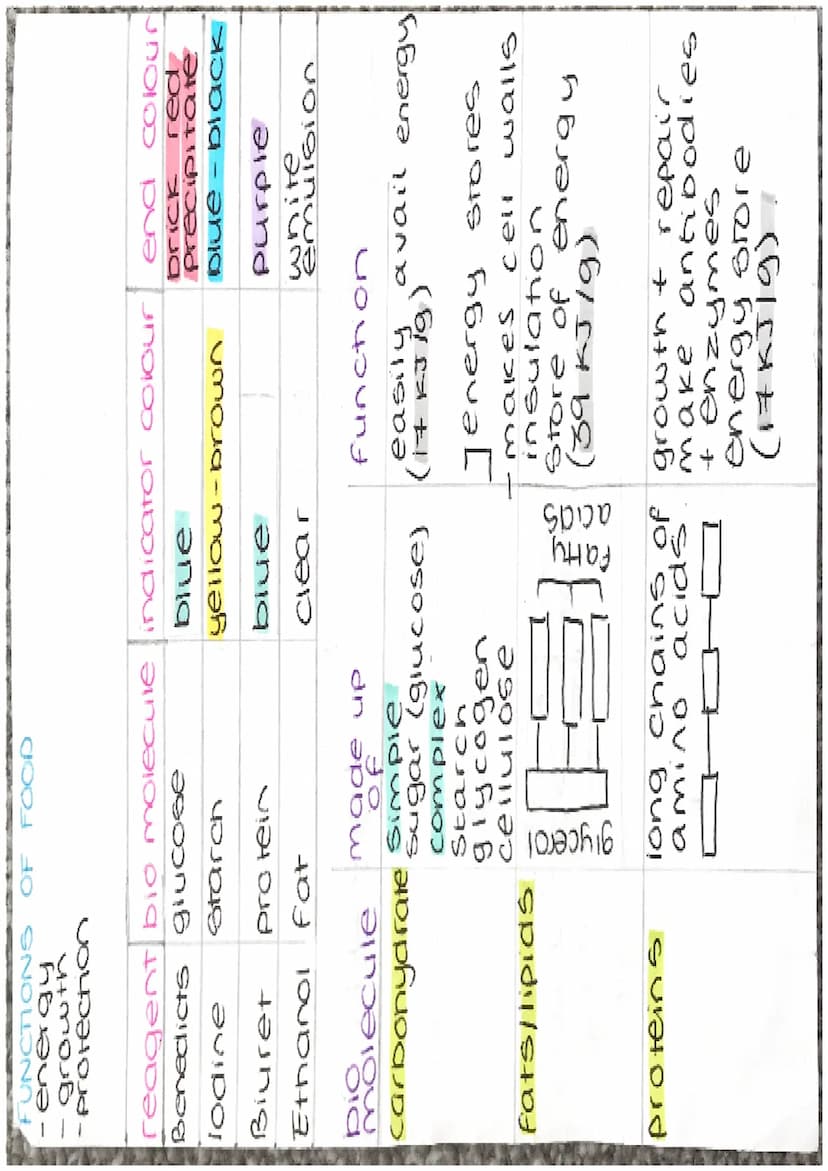 FUNCTIONS OF FOOD
- energy
- growth
- protection
reagent bio molecule indicator colour end colour
Benedicts glucose blue brick red precipitate
Iodine starch yellow-brown blue-black
Biuret protein blue purple
Ethanol fat clear white emulsion
bio molecule made up of function
carbohydrate
simple
sugar (glucose)
complex
starch
glycogen
cellulose
easily avail energy
(17 KJ/g)
] energy stores
- makes cell walls
fats/lipids
glycerol
fatty acids
insulation
store of energy
(39 KJ/g)
proteins
long chains of
amino acids.
growth + repair
make antibodies
+ enzymes
energy store
(17 KJ/g)